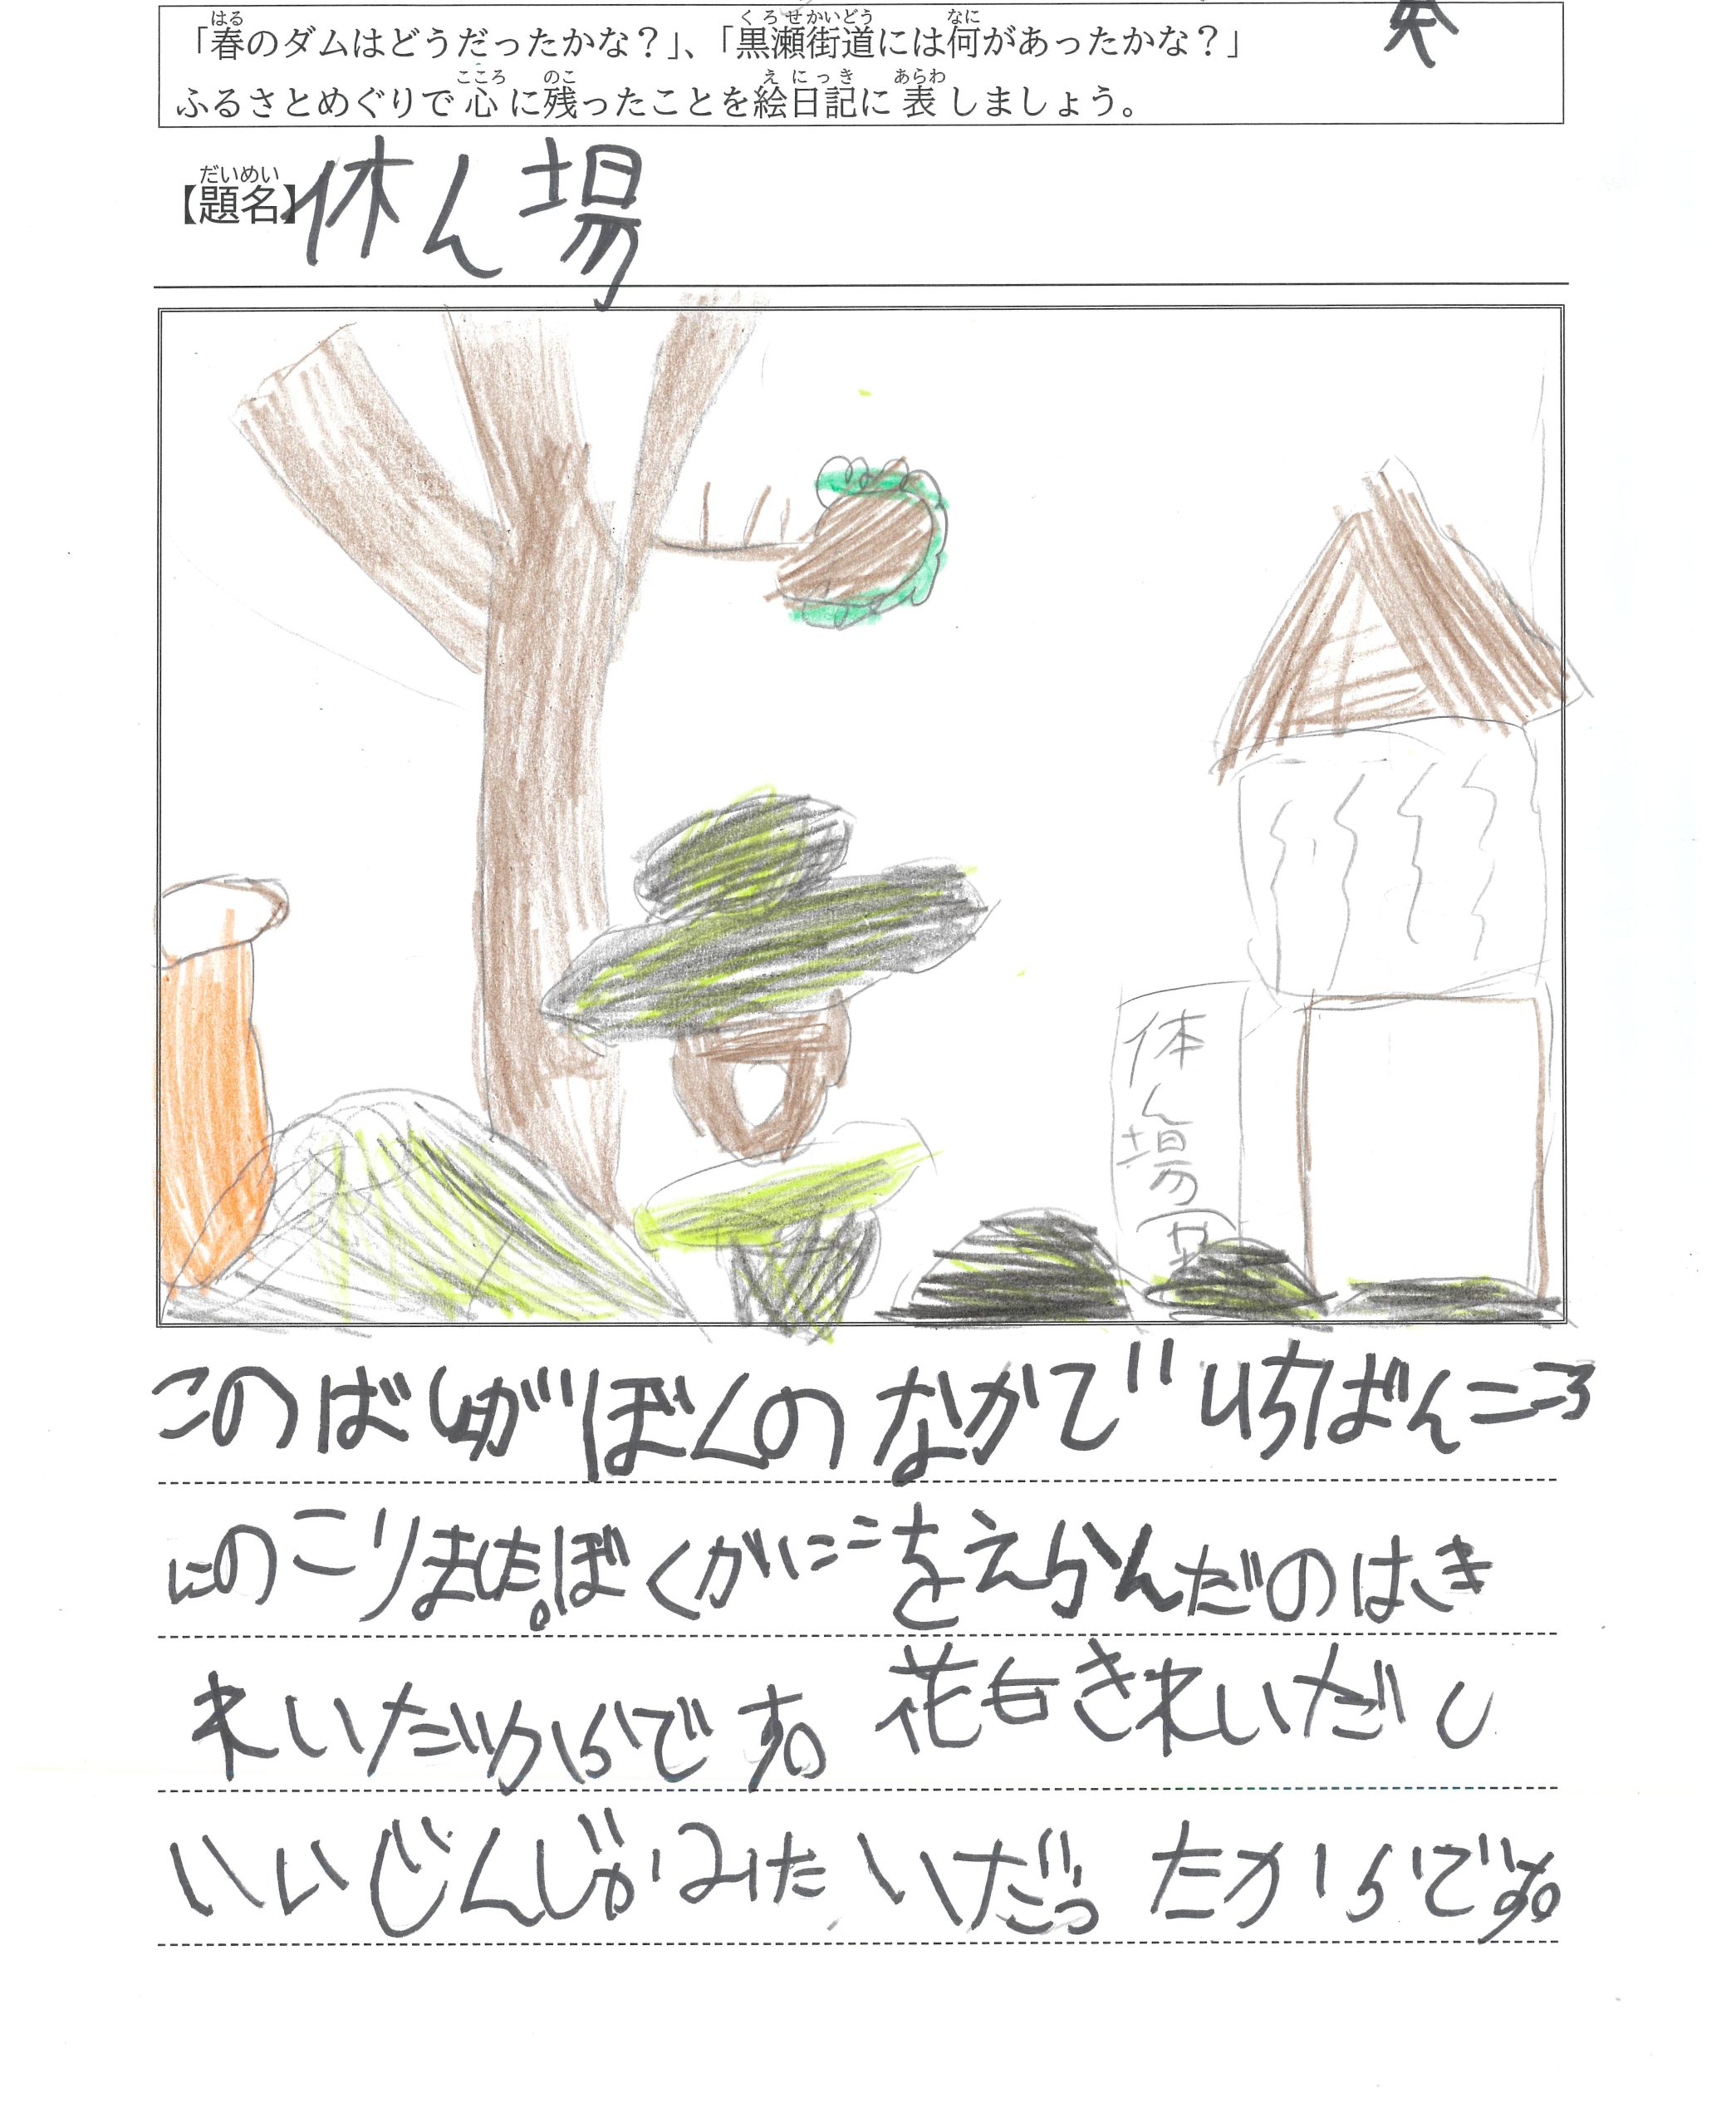 「春のダムはどうだったかな？」、「黒瀬街道には何があったかな？」
ふるさとめぐりで心に残ったことを絵日記に表しましょう。
【題名】休ん場
休ん場
このばしょがぼくのなかでいちばんこころ
にのこりました。ぼくがここをえらんだのはき
れいだからです。花もきれいだし
いいじんじゃみたいだったからです。